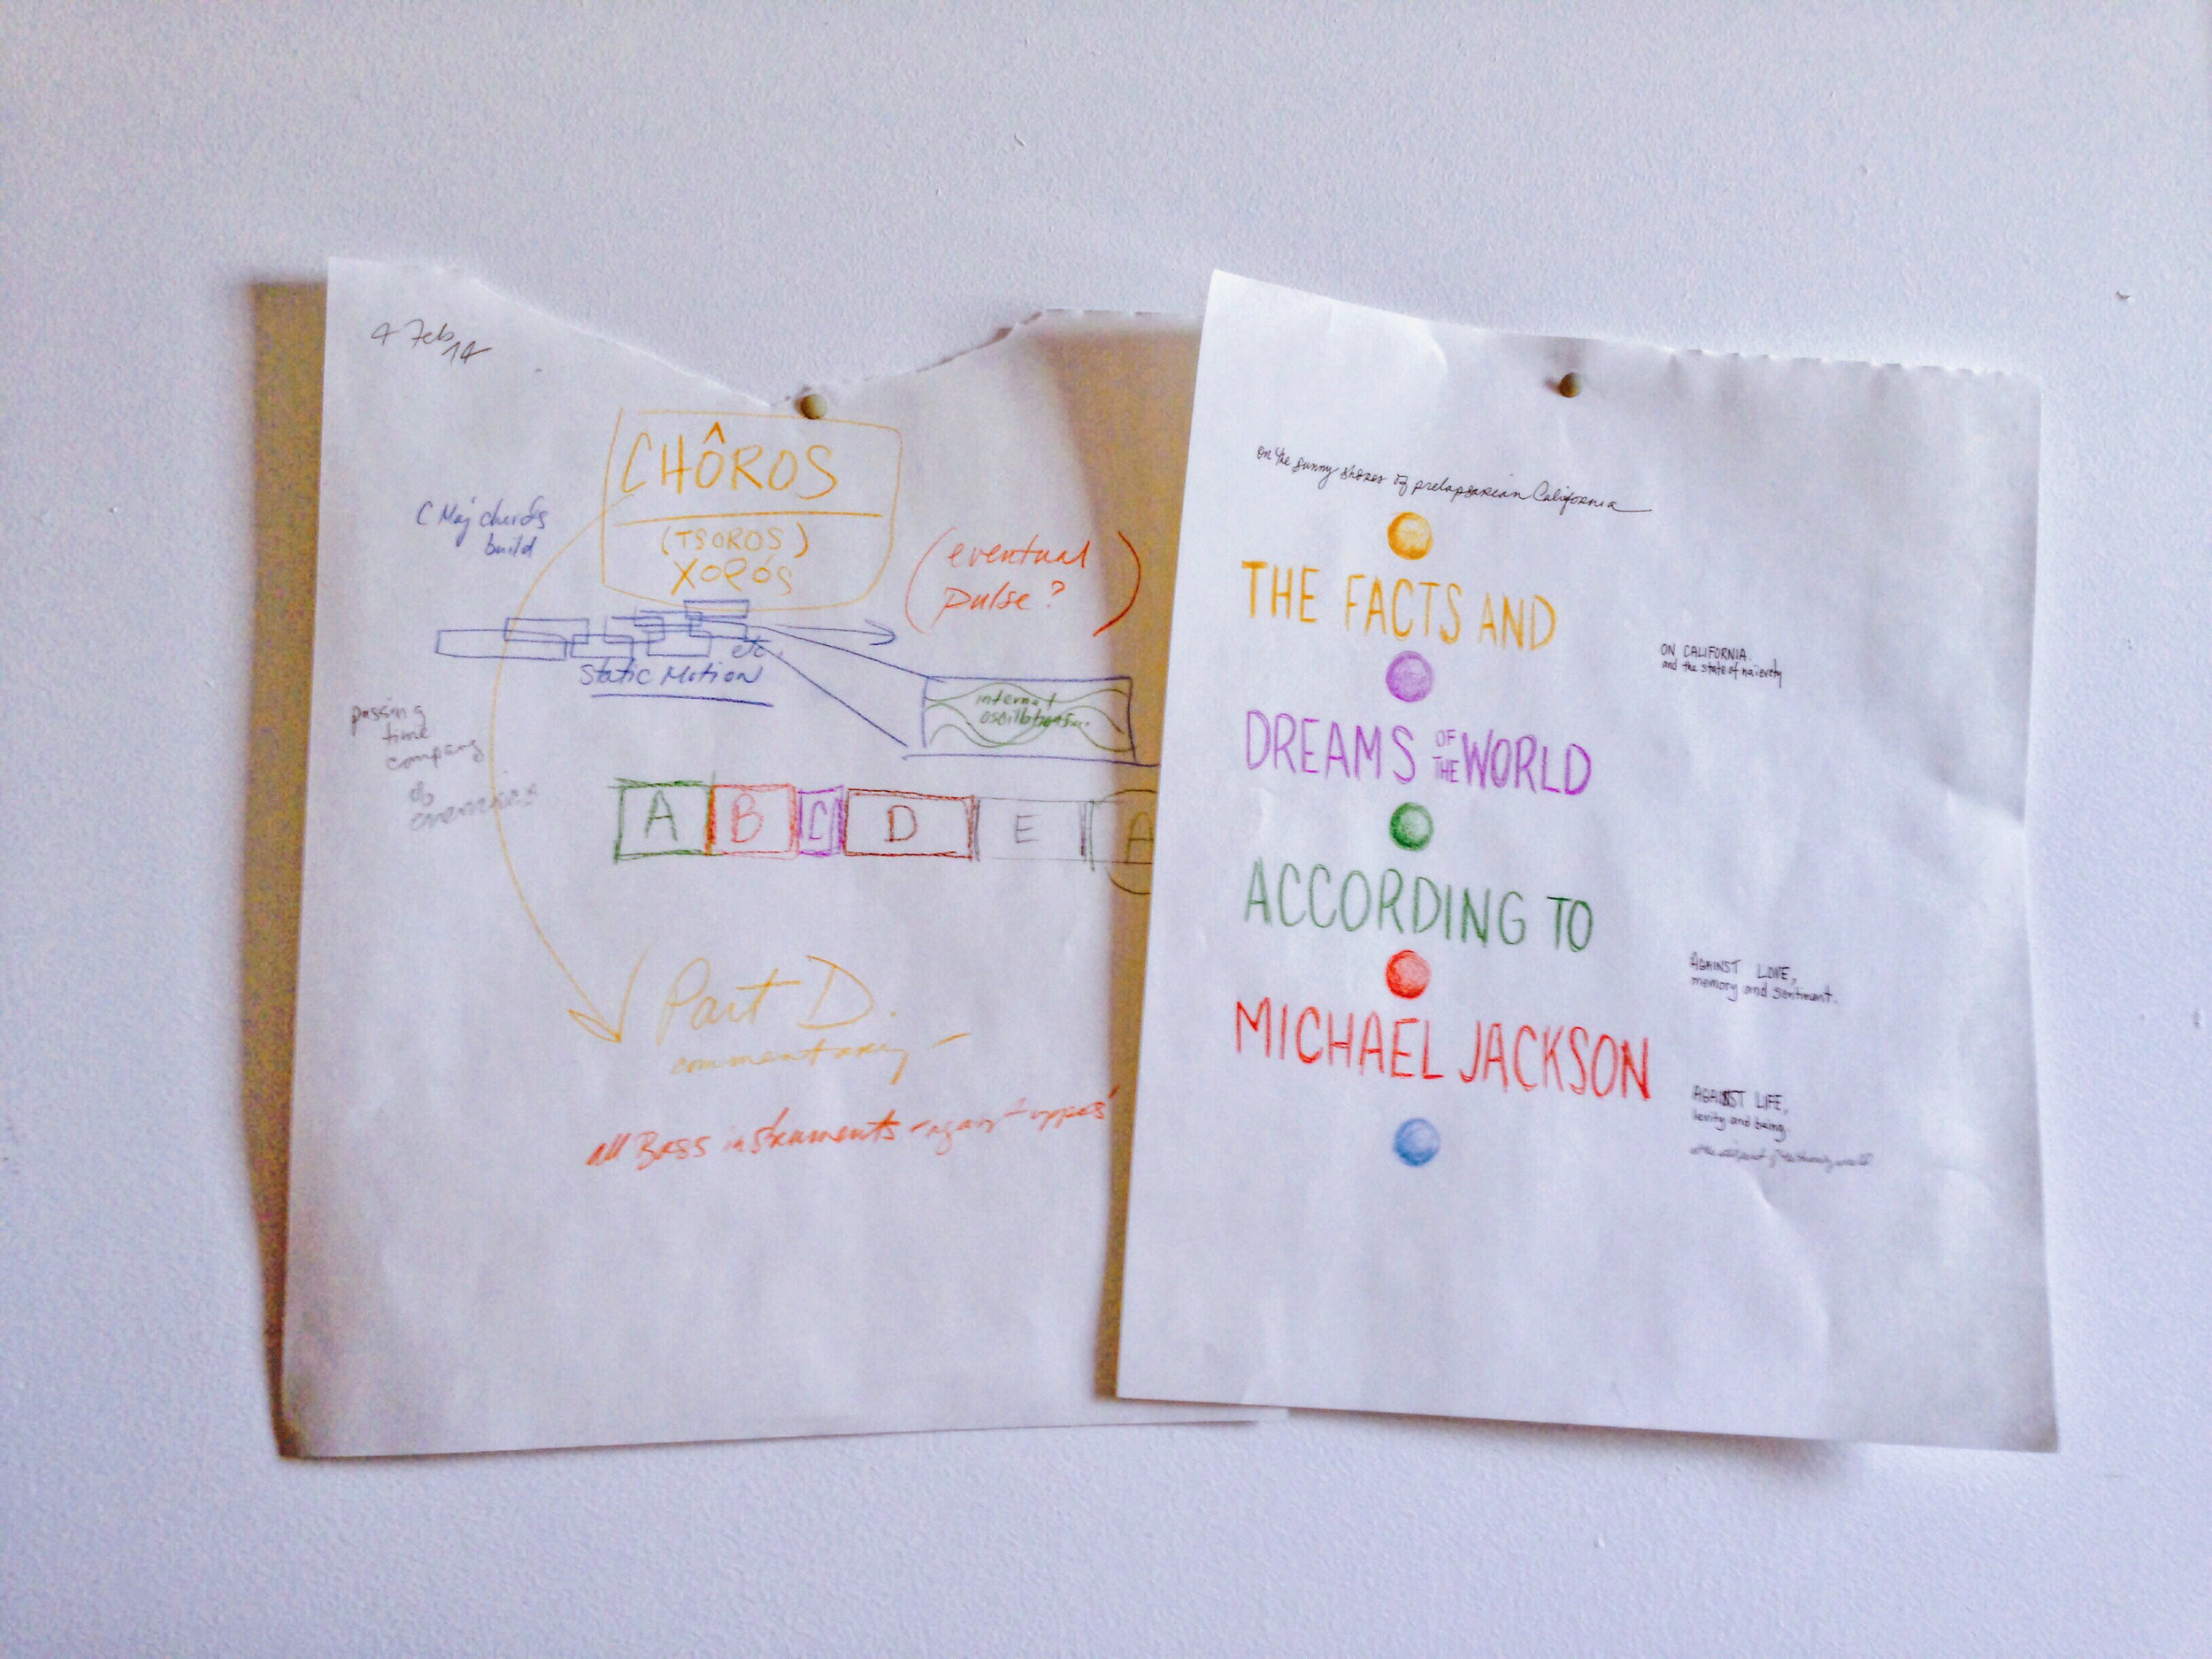 4 Feb 14
CHÔROS
(TSOROS)
χορός
C Maj chords
build
(eventual
pulse?)
etc.
Static Motion
internal
oscillations
passing
time
company
of
enemies
A B C D E A
Part D.
commentary –
all Bass instruments - against upper
on the sunny shores of prelapsarian California
THE FACTS AND
DREAMS OF THE WORLD
ACCORDING TO
MICHAEL JACKSON
ON CALIFORNIA
and the state of naivety
AGAINST LOVE,
memory and sentiment.
AGAINST LIFE,
levity and being